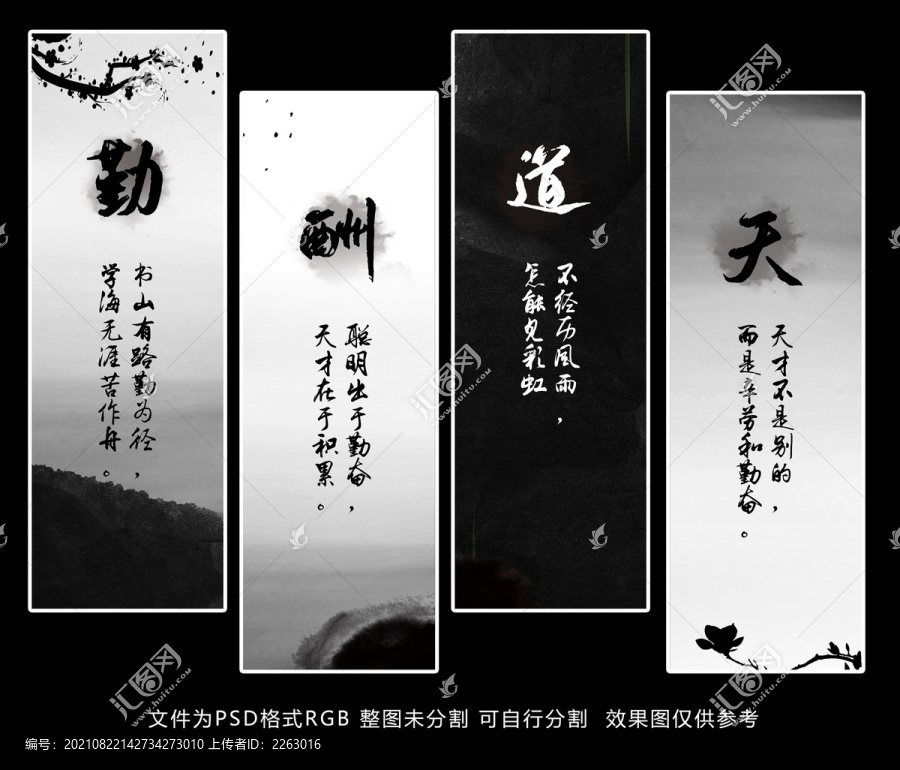 勤
书山有路勤为径，
学海无涯苦作舟。
酬
聪明出于勤奋，
天才在于积累。
道
不经历风雨，
怎能见彩虹
天
天才不是别的，
而是辛劳和勤奋。
文件为PSD格式RGB 整图未分割 可自行分割 效果图仅供参考
编号：20210822142734273010 上传者ID：2263016
汇图网
www.huitu.com